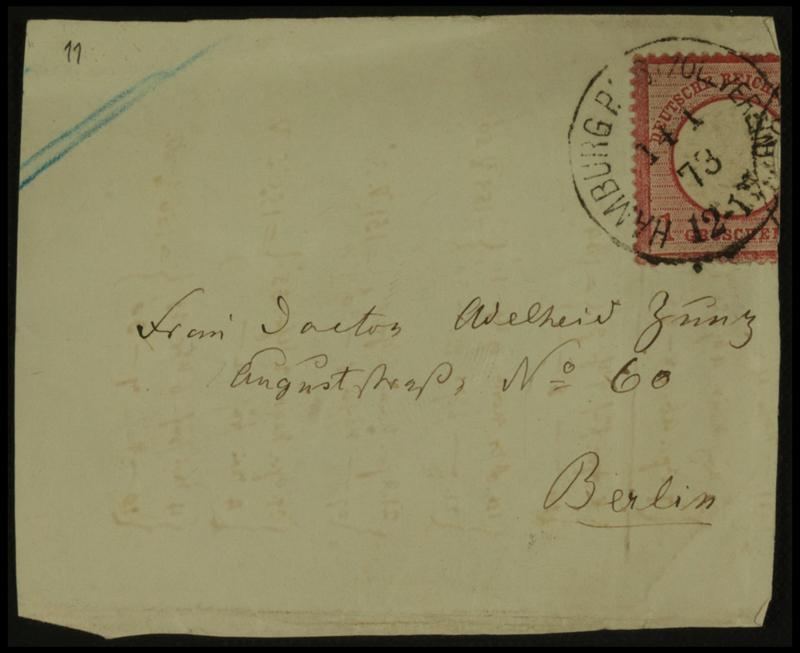 11
HAMBURG P.
ZOLLVEREIN
14 1
73
12-1N
DEUTSCHE REICH
1 GROSCHEN
Frau Doctor Adelheid Zunz
Auguststraße No 60
Berlin